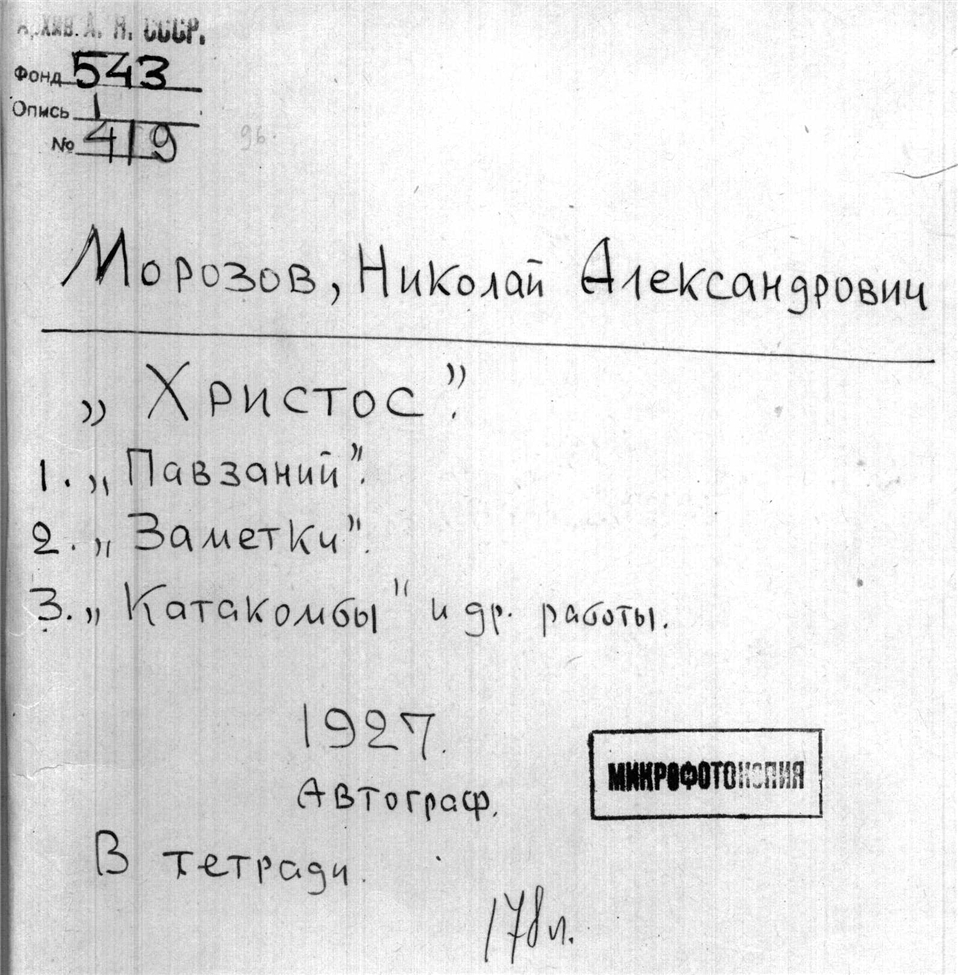 Архив. А. Н. СССР.
Фонд 543
Опись 1
№ 419
96
Морозов, Николай Александрович
„Христос".
1. „Павзаний".
2. „Заметки".
3. „Катакомбы" и др. работы.
1927.
Автограф.
МИКРОФОТОКОПИЯ
В тетради.
178 л.